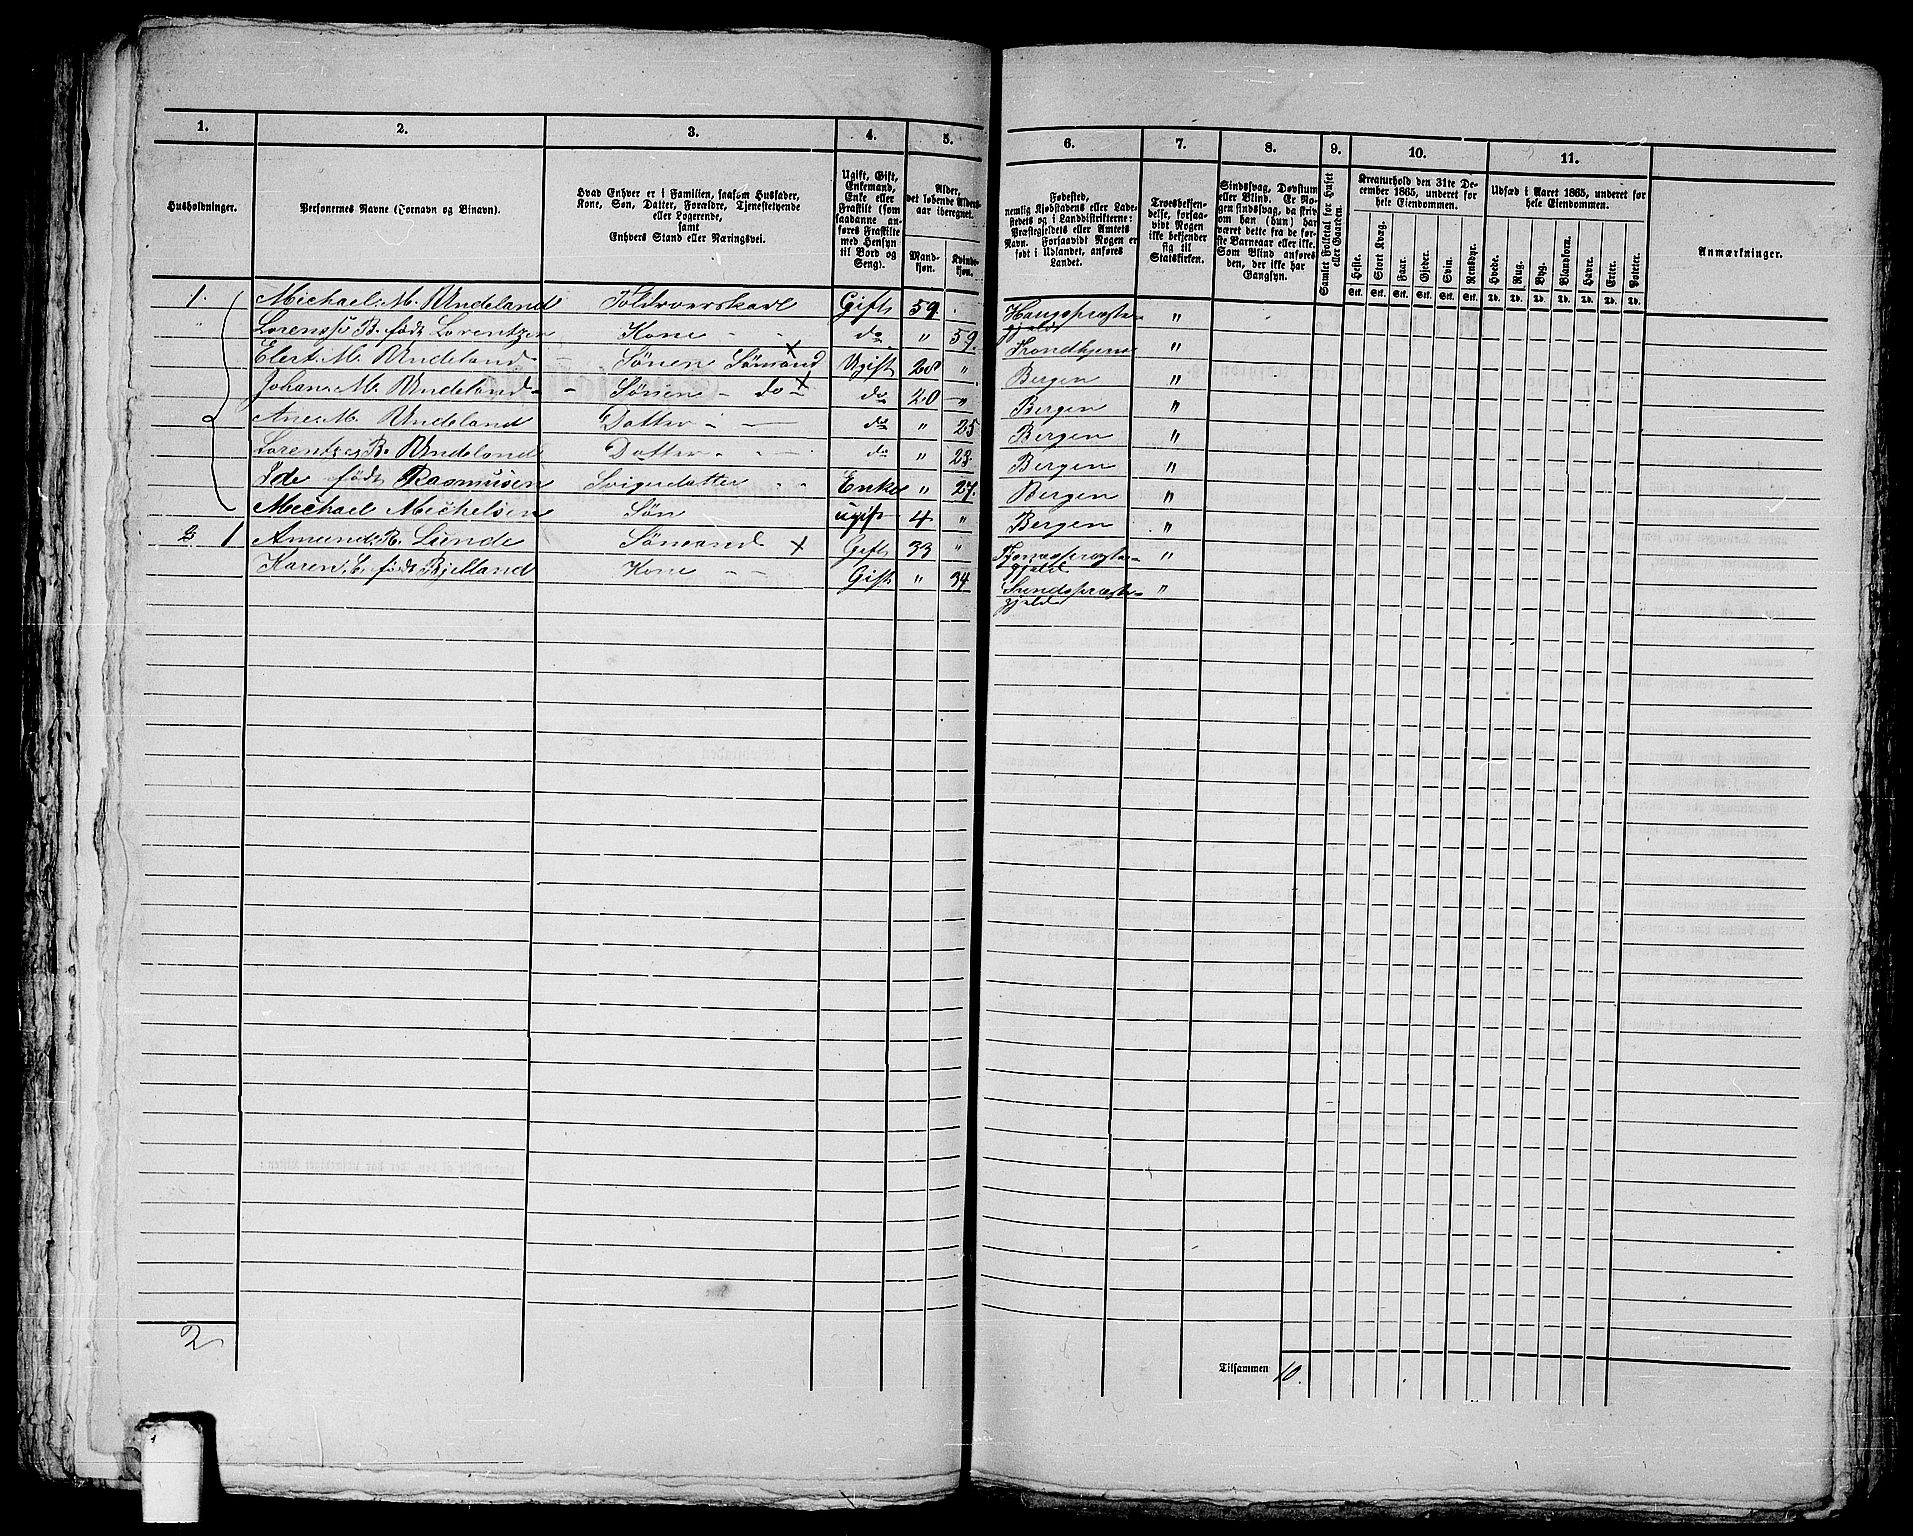 1. 2. 3. 4. 5. 6. 7. 8. 9. 10. 11.
Husholdninger.
Personernes Navne (Fornavn og Binavn).
Hvad Enhver er i Familien, saasom Husfader,
Kone, Søn, Datter, Forældre, Tjenestetyende
eller Logerende,
samt
Enhvers Stand eller Næringsvei.
Ugift, Gift,
Enkemand,
Enke eller
Fraskilt (som
saadanne an-
føres Fraskilte
med Hensyn
til Bord og
Seng).
Alder,
det løbende Alders-
aar iberegnet.
Mand-
kjøn.
Kvinde-
kjøn.
Fødested,
nemlig Kjøbstadens eller Lade-
stedets og i Landdistrikterne:
Præstegjeldets eller Amtets
Navn. Forsaavidt Nogen er
født i Udlandet, anføres
Landet.
Troesbekjen-
delse, forsaa-
vidt Nogen
ikke bekjender
sig til
Statskirken.
Sindssvag, Døvstum
eller Blind. Er No-
gen sindssvag, da skriv
om han (hun) har
været dette fra de før-
ste Barneaar eller ikke.
Som Blind anføres
den, der ikke har
Gangsyn.
Samlet Folketal for Huset
eller Gaarden.
Kreaturhold den 31te De-
cember 1865, underet for
hele Eiendommen.
Heste. Stort Kvæg. Faar. Gjeder. Svin. Rensdyr.
Stk. Stk. Stk. Stk. Stk. Stk.
Udsæd i Aaret 1865, underet for
hele Eiendommen.
Hvede. Rug. Byg. Blandkorn. Havre. Erter. Poteter.
Td. Td. Td. Td. Td. Td. Td.
Anmærkninger.
1. Michael M. Undeland Toldroerskarl Gift 59. Hougspræste-gjeld "
" B. født Lorentzen Kone - - do " 59. Trondhjem "
Elert M. Undeland Sönen Sömand x Ugift 20 " Bergen "
Johan M. Undeland - - Sönen - do x do 20 " Bergen "
Ane M. Undeland Datter - - do " 25 Bergen "
B. Undeland Datter - - do " 23. Bergen "
Ide født Rasmusen Svigerdatter - - Enke " 27. Bergen "
Michael Michelsen Sön ugift 4 " Bergen "
2 1 Amund R. Lunde Sömand x Gift 33 " "
Karen E. født Bjelland Kone - - Gift " 34 Sundspræste-gjeld "
2
Tilsammen 10.